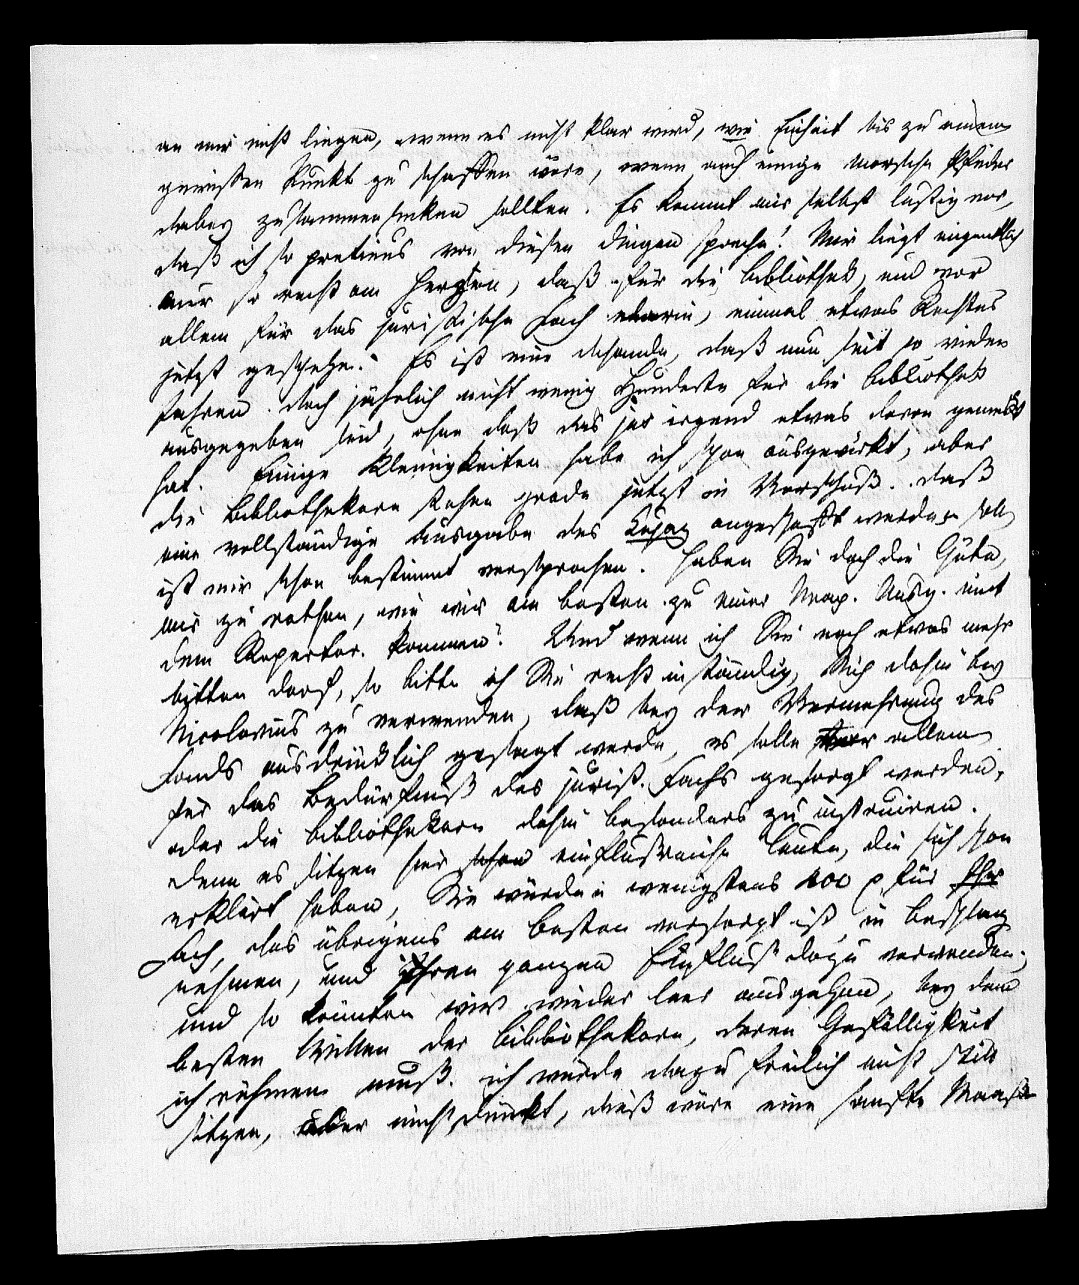 an mir nicht liegen, wenn es nicht klar wird, wie Einheit bis zu einem
gewissen Punkt zu schaffen wäre, wenn auch einige morsche Pfeiler
dabey zusammensinken sollten. Es kommt mir selbst lustig vor,
daß ich so pretiens von diesen Dingen spreche! Mir liegt eigentlich
nur so recht am Herzen, daß für die Bibliothek, und vor
allem für das juristische Fach darin, einmal etwas Rechtes
jetzt geschehe. Es ist eine Schande, daß nun seit so vielen
Jahren doch jährlich nicht wenig Hunderte für die Bibliothek
ausgegeben sind, ohne daß das jus irgend etwas davon gemerkt
hat. Einige Kleinigkeiten habe ich schon ausgewirkt, aber
die Bibliothekare stehen grade jetzt in Vorschuß. Daß
eine vollständige Ausgabe des Cujaz angeschafft werden soll,
ist mir schon bestimmt versprochen. Haben Sie doch die Güte,
mir zu rathen, wie wir am besten zu einer Neap. Ausg. mit
dem Repertor. kommen? Und wenn ich Sie noch etwas mehr
bitten darf, so bitte ich Sie recht inständig, Sich dahin bey
Nicolovius zu verwenden, daß bey der Vermehrung des
Fonds ausdrücklich gesagt werde, es solle vor allem
für das Bedürfniß des jurist. Fachs gesorgt werden,
oder die Bibliothekare dahin besonders zu instruiren.
Denn es sitzen hier schon einflußreiche Leute, die sich schon
erklärt haben, Sie würden wenigstens 400 für Ihr
Fach, das übrigens am besten versorgt ist, in Beschlag
nehmen, und Ihren ganzen Einfluß dazu verwenden;
und so könnten wir wieder leer ausgehen, bey dem
besten Willen der Bibliothekare, deren Gefälligkeit
ich rühmen muß. Ich würde dazu freilich nicht still
sitzen, aber mich dünkt, dieß wäre eine sanfte Maaß